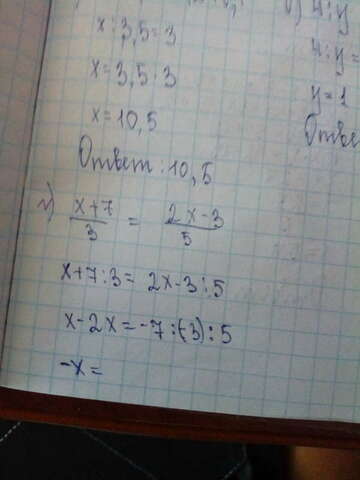 x : 3,5 = 3
x = 3,5 · 3
x = 10,5
Ответ: 10,5
г) x+7/3 = 2x-3/5
x+7:3 = 2x-3:5
x-2x = -7:(-3):5
-x =
б) 4:y
4:y =
y = 1
Отве